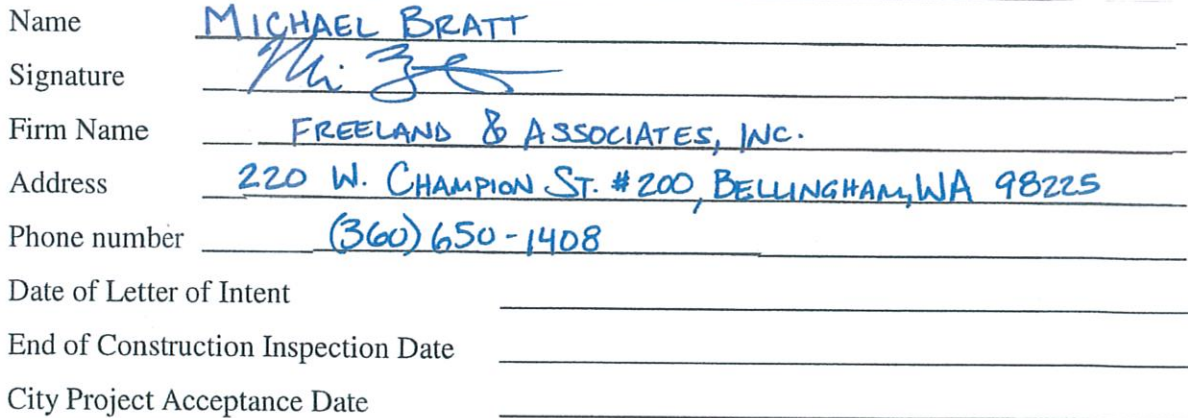 Name MICHAEL BRATT
Signature
Firm Name FREELAND & ASSOCIATES, INC.
Address 220 W. CHAMPION ST. #200, BELLINGHAM, WA 98225
Phone number (360) 650-1408
Date of Letter of Intent
End of Construction Inspection Date
City Project Acceptance Date